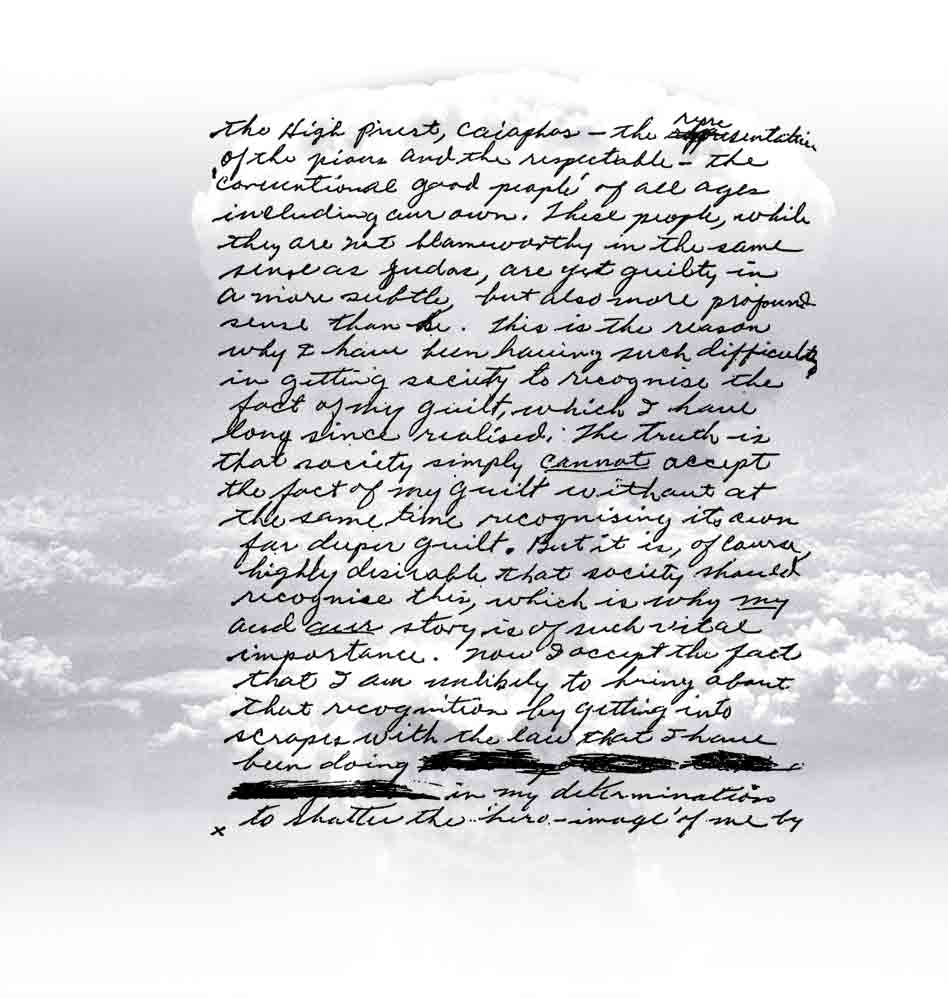 the High Priest, Caiaphas — the representative
of the pious and the respectable — the
'conventional good people' of all ages
including our own. These people, while
they are not blameworthy in the same
sense as Judas, are yet guilty in
a more subtle, but also more profound
sense than he. This is the reason
why I have been having such difficulty
in getting society to recognise the
fact of my guilt, which I have
long since realised. The truth is
that society simply cannot accept
the fact of my guilt without at
the same time recognising its own
far deeper guilt. But it is, of course,
highly desirable that society should
recognise this, which is why my
and our story is of such vital
importance. Now I accept the fact
that I am unlikely to bring about
that recognition by getting into
scrapes with the law that I have
been doing
in my determination
x to shatter the 'hero-image' of me by